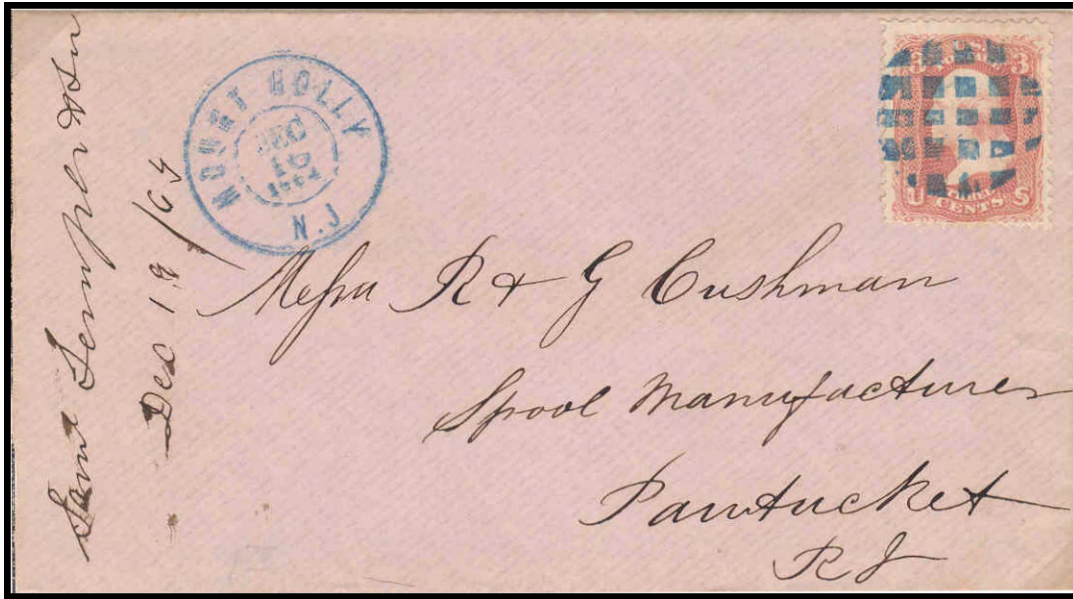 Saml Semple & Son
Dec 19 /64
MOUNT HOLLY
DEC
19
N.J
3 3
U S
CENTS
Messrs R & G Cushman
Spool Manufacturer
Pawtucket
R I